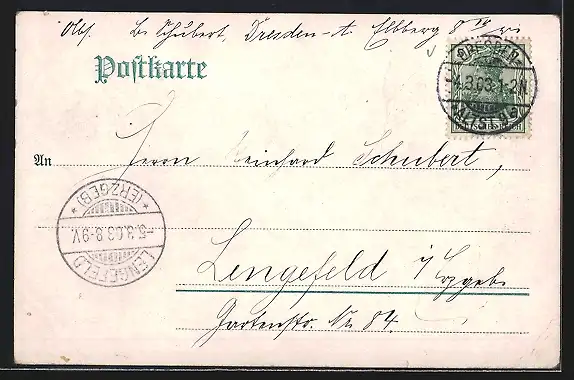 Abs. B. Schubert, Dresden-A. Elbberg 8
Postkarte
DRESDEN-
4.3.03.1-2N.
ALTST.
An Herrn Reinhard Schubert,
*(ERZGEB)*
-5.3.03.8-9V.
LENGEFELD
Lengefeld i/Erzgeb.
Gartenstr. No 84.